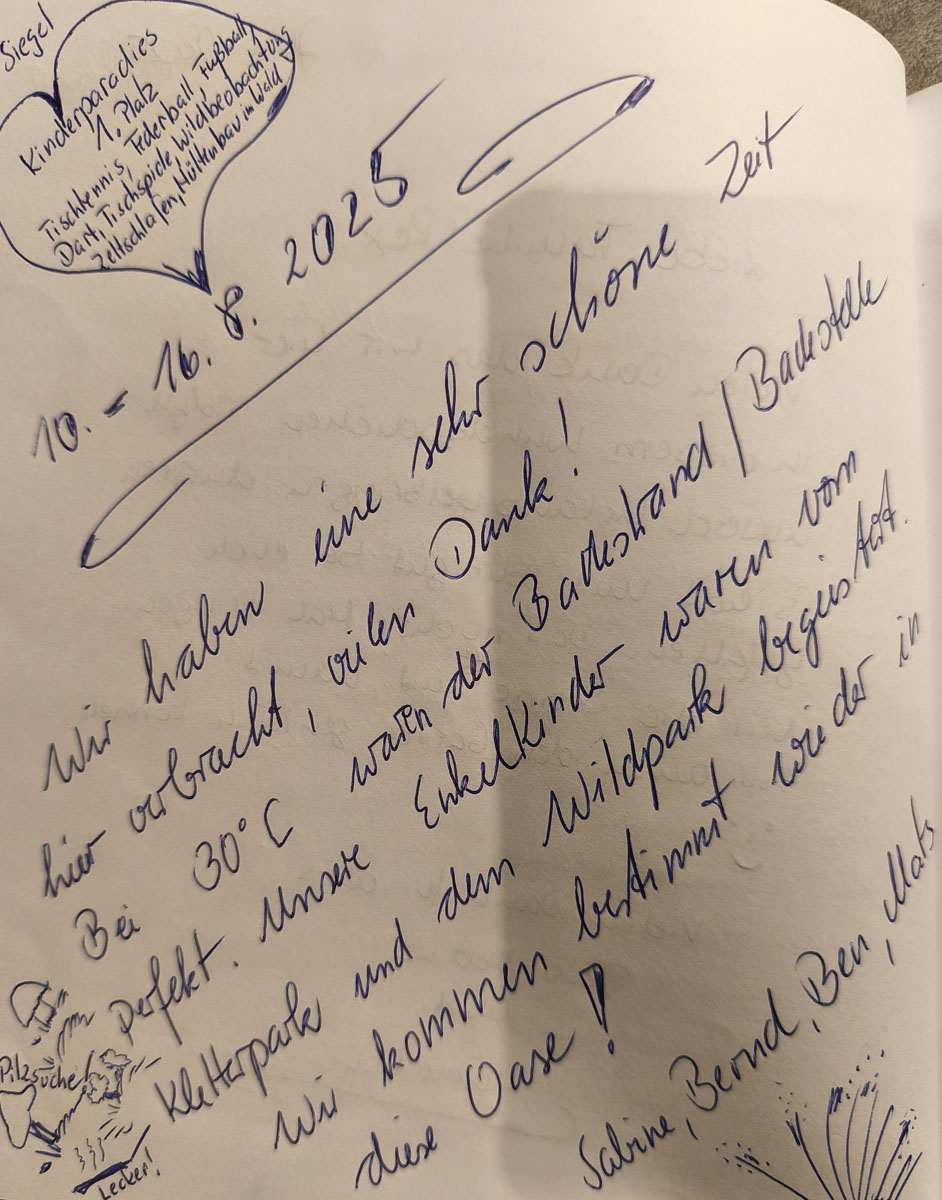 Siegel
Kinderparadies
1. Platz
Tischtennis, Federball, Fußball,
Dart, Tischspiele, Wildbeobachtung
Zeltschlafen, Hüttenbau im Wald
10. - 16. 8. 2025
Wir haben eine sehr schöne Zeit
hier verbracht, vielen Dank!
Bei 30°C waren der Badestrand/Badestelle
perfekt. Unsere Enkelkinder waren vom
Kletterpark und dem Wildpark begeistert.
Wir kommen bestimmt wieder in
diese Oase!
Sabine, Bernd, Ben, Mats
Pilzsuche!
Lecker!